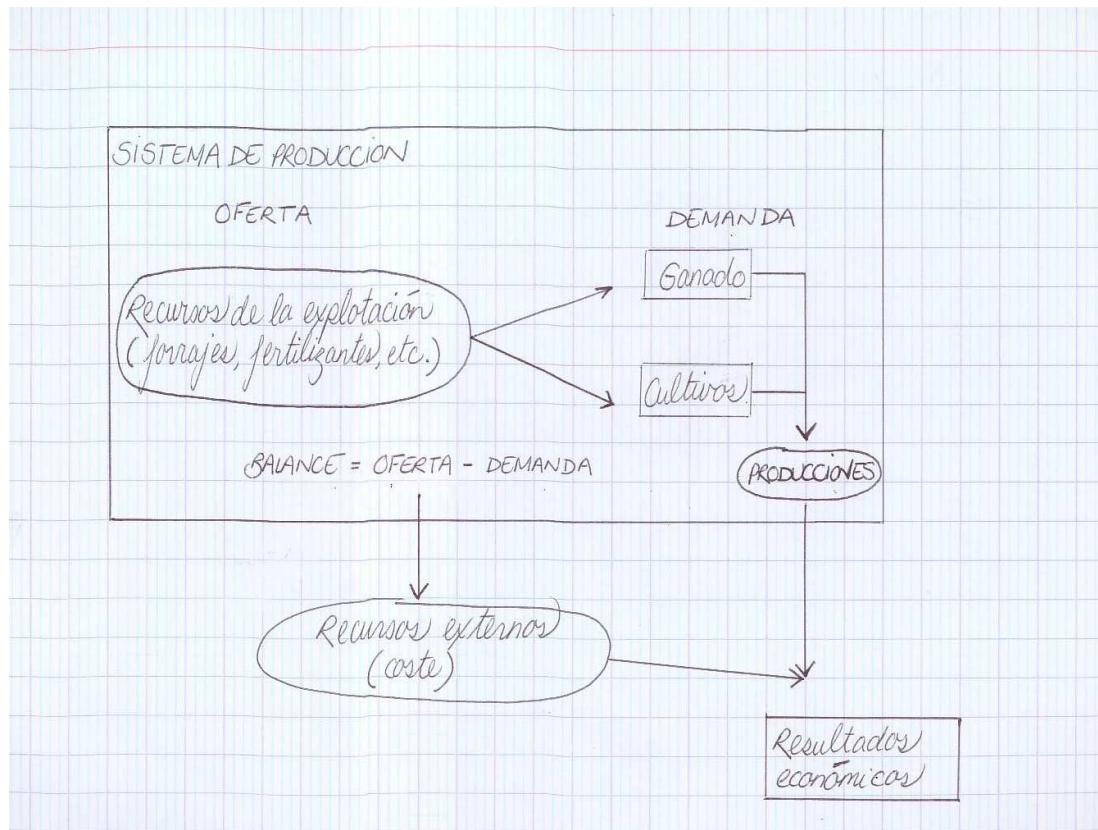 SISTEMA DE PRODUCCION
OFERTA
DEMANDA
Recursos de la explotación
(forrajes, fertilizantes, etc.)
Ganado
Cultivos
BALANCE = OFERTA - DEMANDA
PRODUCCIONES
Recursos externos
(coste)
Resultados
económicos